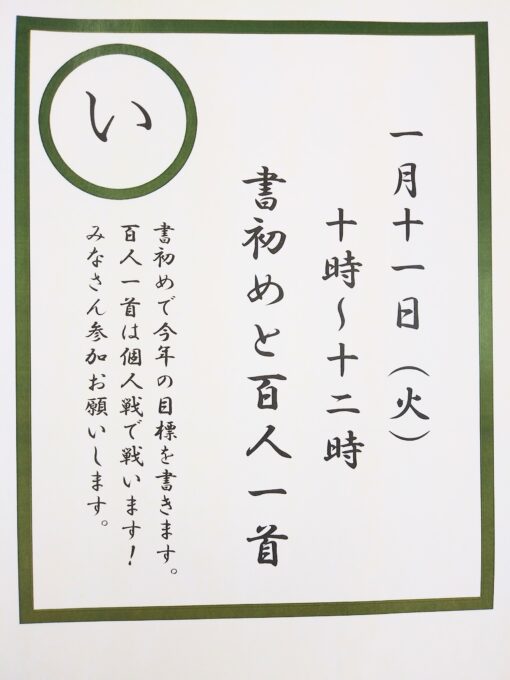 一月十一日（火）
十時～十二時
書初めと百人一首
書初めで今年の目標を書きます。
百人一首は個人戦で戦います！
みなさん参加お願いします。
い